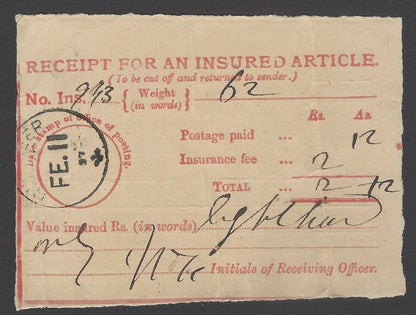 RECEIPT FOR AN INSURED ARTICLE.
(To be cut off and returned to sender.)
No. Ins. 943 { Weight (in words) } 62
Rs. As.
Postage paid ... 12
Insurance fee ... 2
TOTAL ... 2 12
Date-stamp of office of posting.
FE. 11
97
Value insured Rs. (in words)
only
Initials of Receiving Officer.